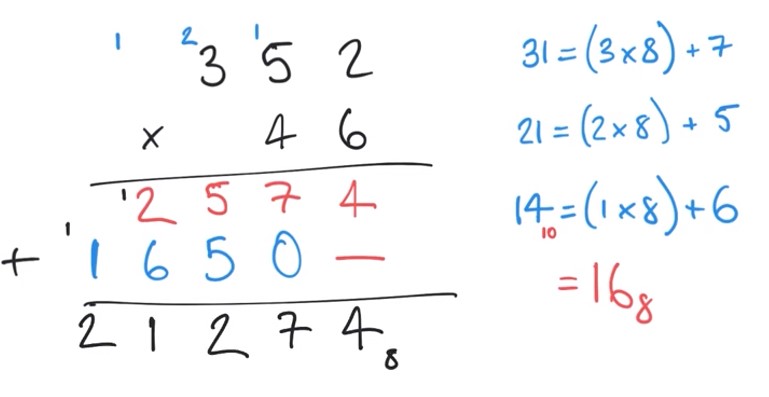 1 2 3 1 5 2
x 4 6
1 2 5 7 4
1
+ 1 6 5 0 —
2 1 2 7 4 8
31 = (3 x 8) + 7
21 = (2 x 8) + 5
14 10 = (1 x 8) + 6
= 16 8